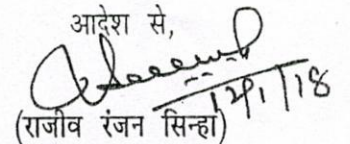 आदेश से,
12/1/18
(राजीव रंजन सिन्हा)